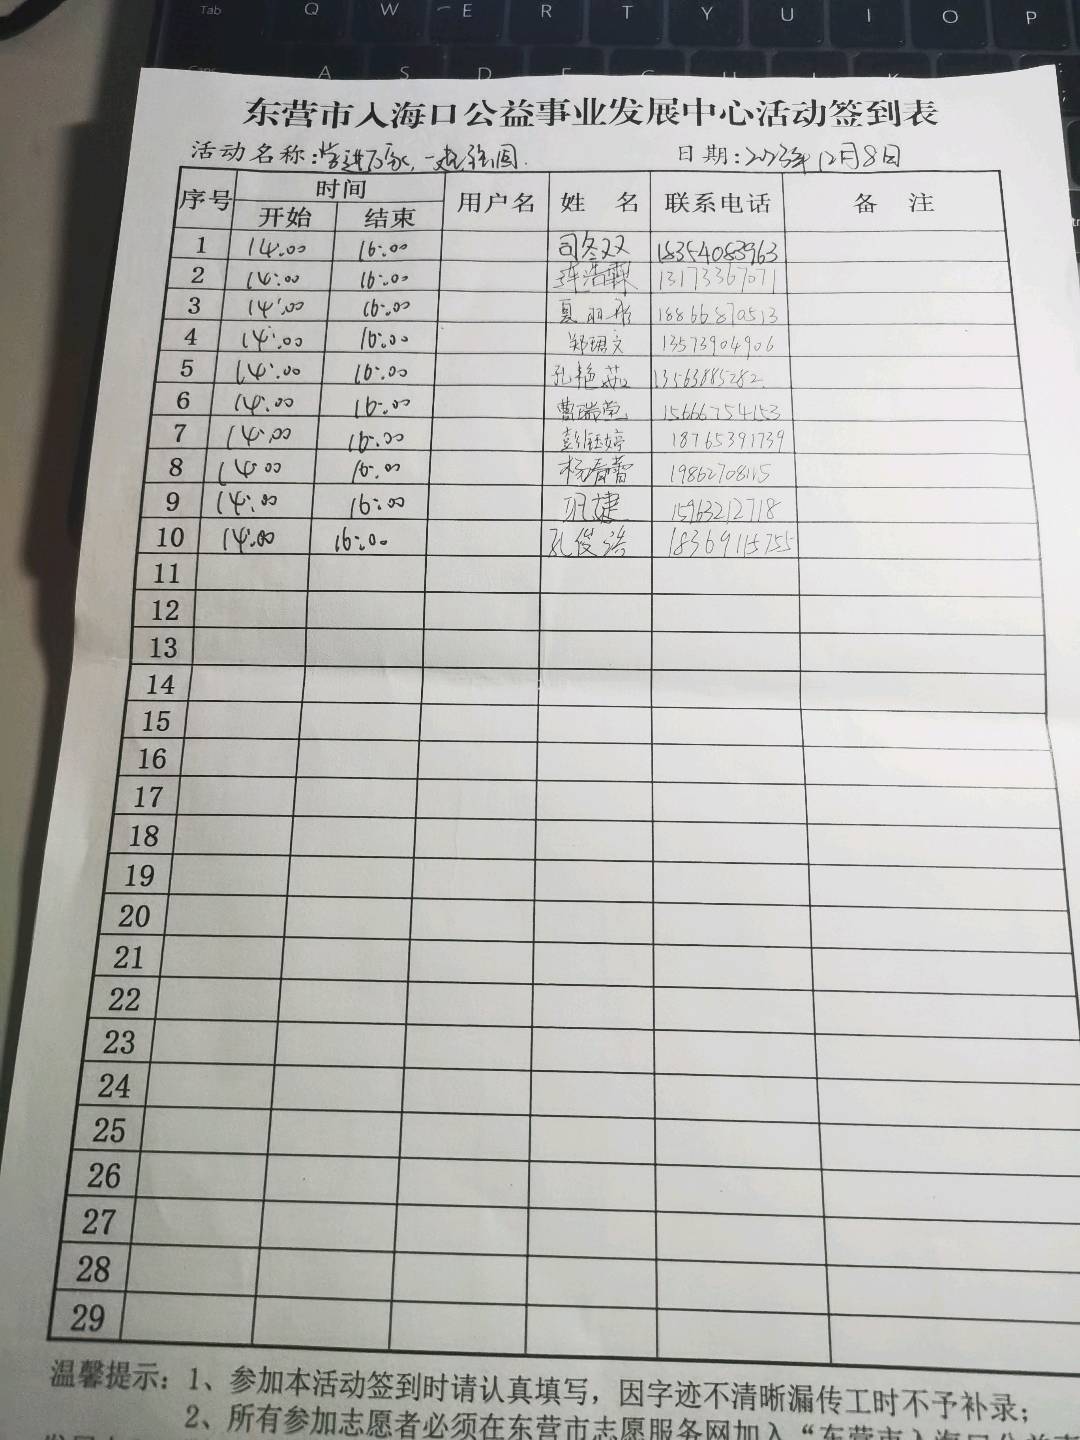 Tab Q W E R T Y U I O P
A S D
东营市入海口公益事业发展中心活动签到表
活动名称: 日期:2023年12月8日
序号 时间 用户名 姓 名 联系电话 备 注
开始 结束
1 14:00 16:00 司冬双 18354083963
2 14:00 16:00 13173367071
3 14:00 16:00 夏丽彤 18866870513
4 14:00 16:00 郑珺文 13573904906
5 14:00 16:00 孔艳茹 13563885282
6 14:00 16:00 15666754153
7 14:00 16:00 彭钰婷 18765391739
8 14:00 16:00 杨春蕾 19862708115
9 14:00 16:00 巩婕 15963212718
10 14:00 16:00 孔俊浩 18369115755
11
12
13
14
15
16
17
18
19
20
21
22
23
24
25
26
27
28
29
温馨提示:1、参加本活动签到时请认真填写,因字迹不清晰漏传工时不予补录;
2、所有参加志愿者必须在东营市志愿服务网加入“东营市入海口公益事